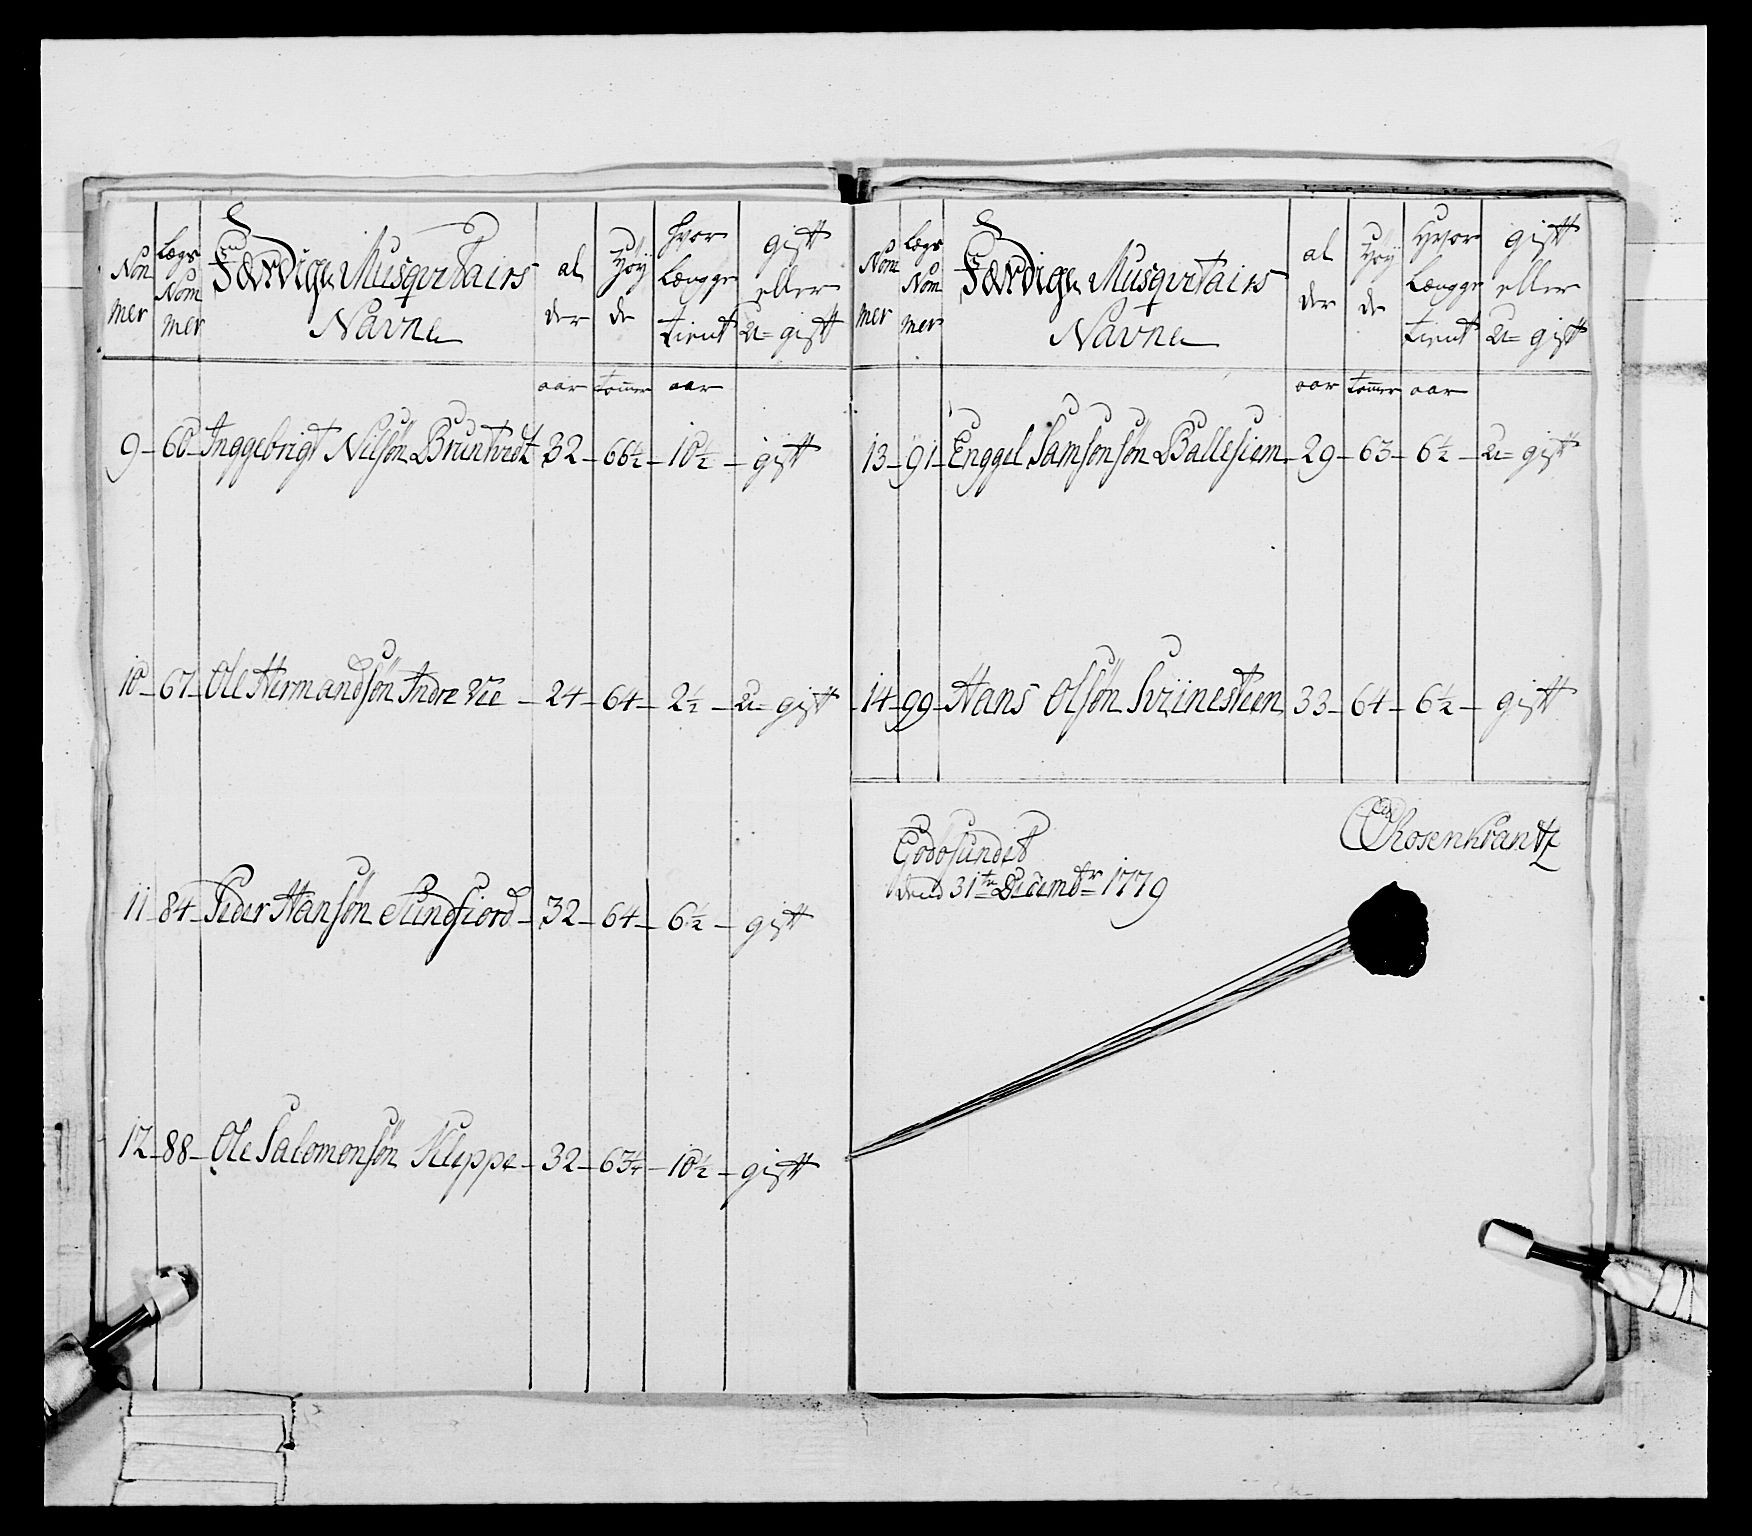 Nom
mer
Lægs
Nom
mer
Færdige Musqvitairs
Navne
al
der
Høy
de
hvor
længge
tient
gift
eller
u= gift
aar tomer aar
9 – 60 – Inggebrigt Nilsøn Bruntvedt 32 – 66½ – 10½ – gift
10 – 67 – Ole Hermandsøn Indre Vie – 24 – 64 – 2½ – u= gift
11 – 84 – Peder Hansøn Sundfiord – 32 – 64 – 6½ – gift
12 – 88 – Ole Salomonsøn Kleppe – 32 – 63¼ – 10½ – gift
Nom
mer
Lægs
Nom
mer
Færdige Musqvitairs
Navne
al
der
Høy
de
Hvor
længge
tient
gift
eller
u= gift
aar tomer aar
13 – 91 – Enggel Samsonsøn Ballesiem – 29 – 63 – 6½ – u= gift
14 – 99 – Hans Olsøn Sviinestien 33 – 64 – 6½ – gift
Rosenkrantz
Godøsundet
dend 31te Decembr 1779